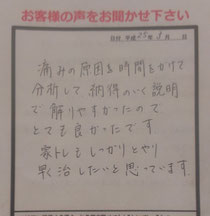 お客様の声をお聞かせ下さい
日付 平成25年3月 日
痛みの原因を時間をかけて
分析して、納得のいく説明
で解りやすかったので
とても良かったです。
家トレもしっかりとやり
早く治したいと思っています。